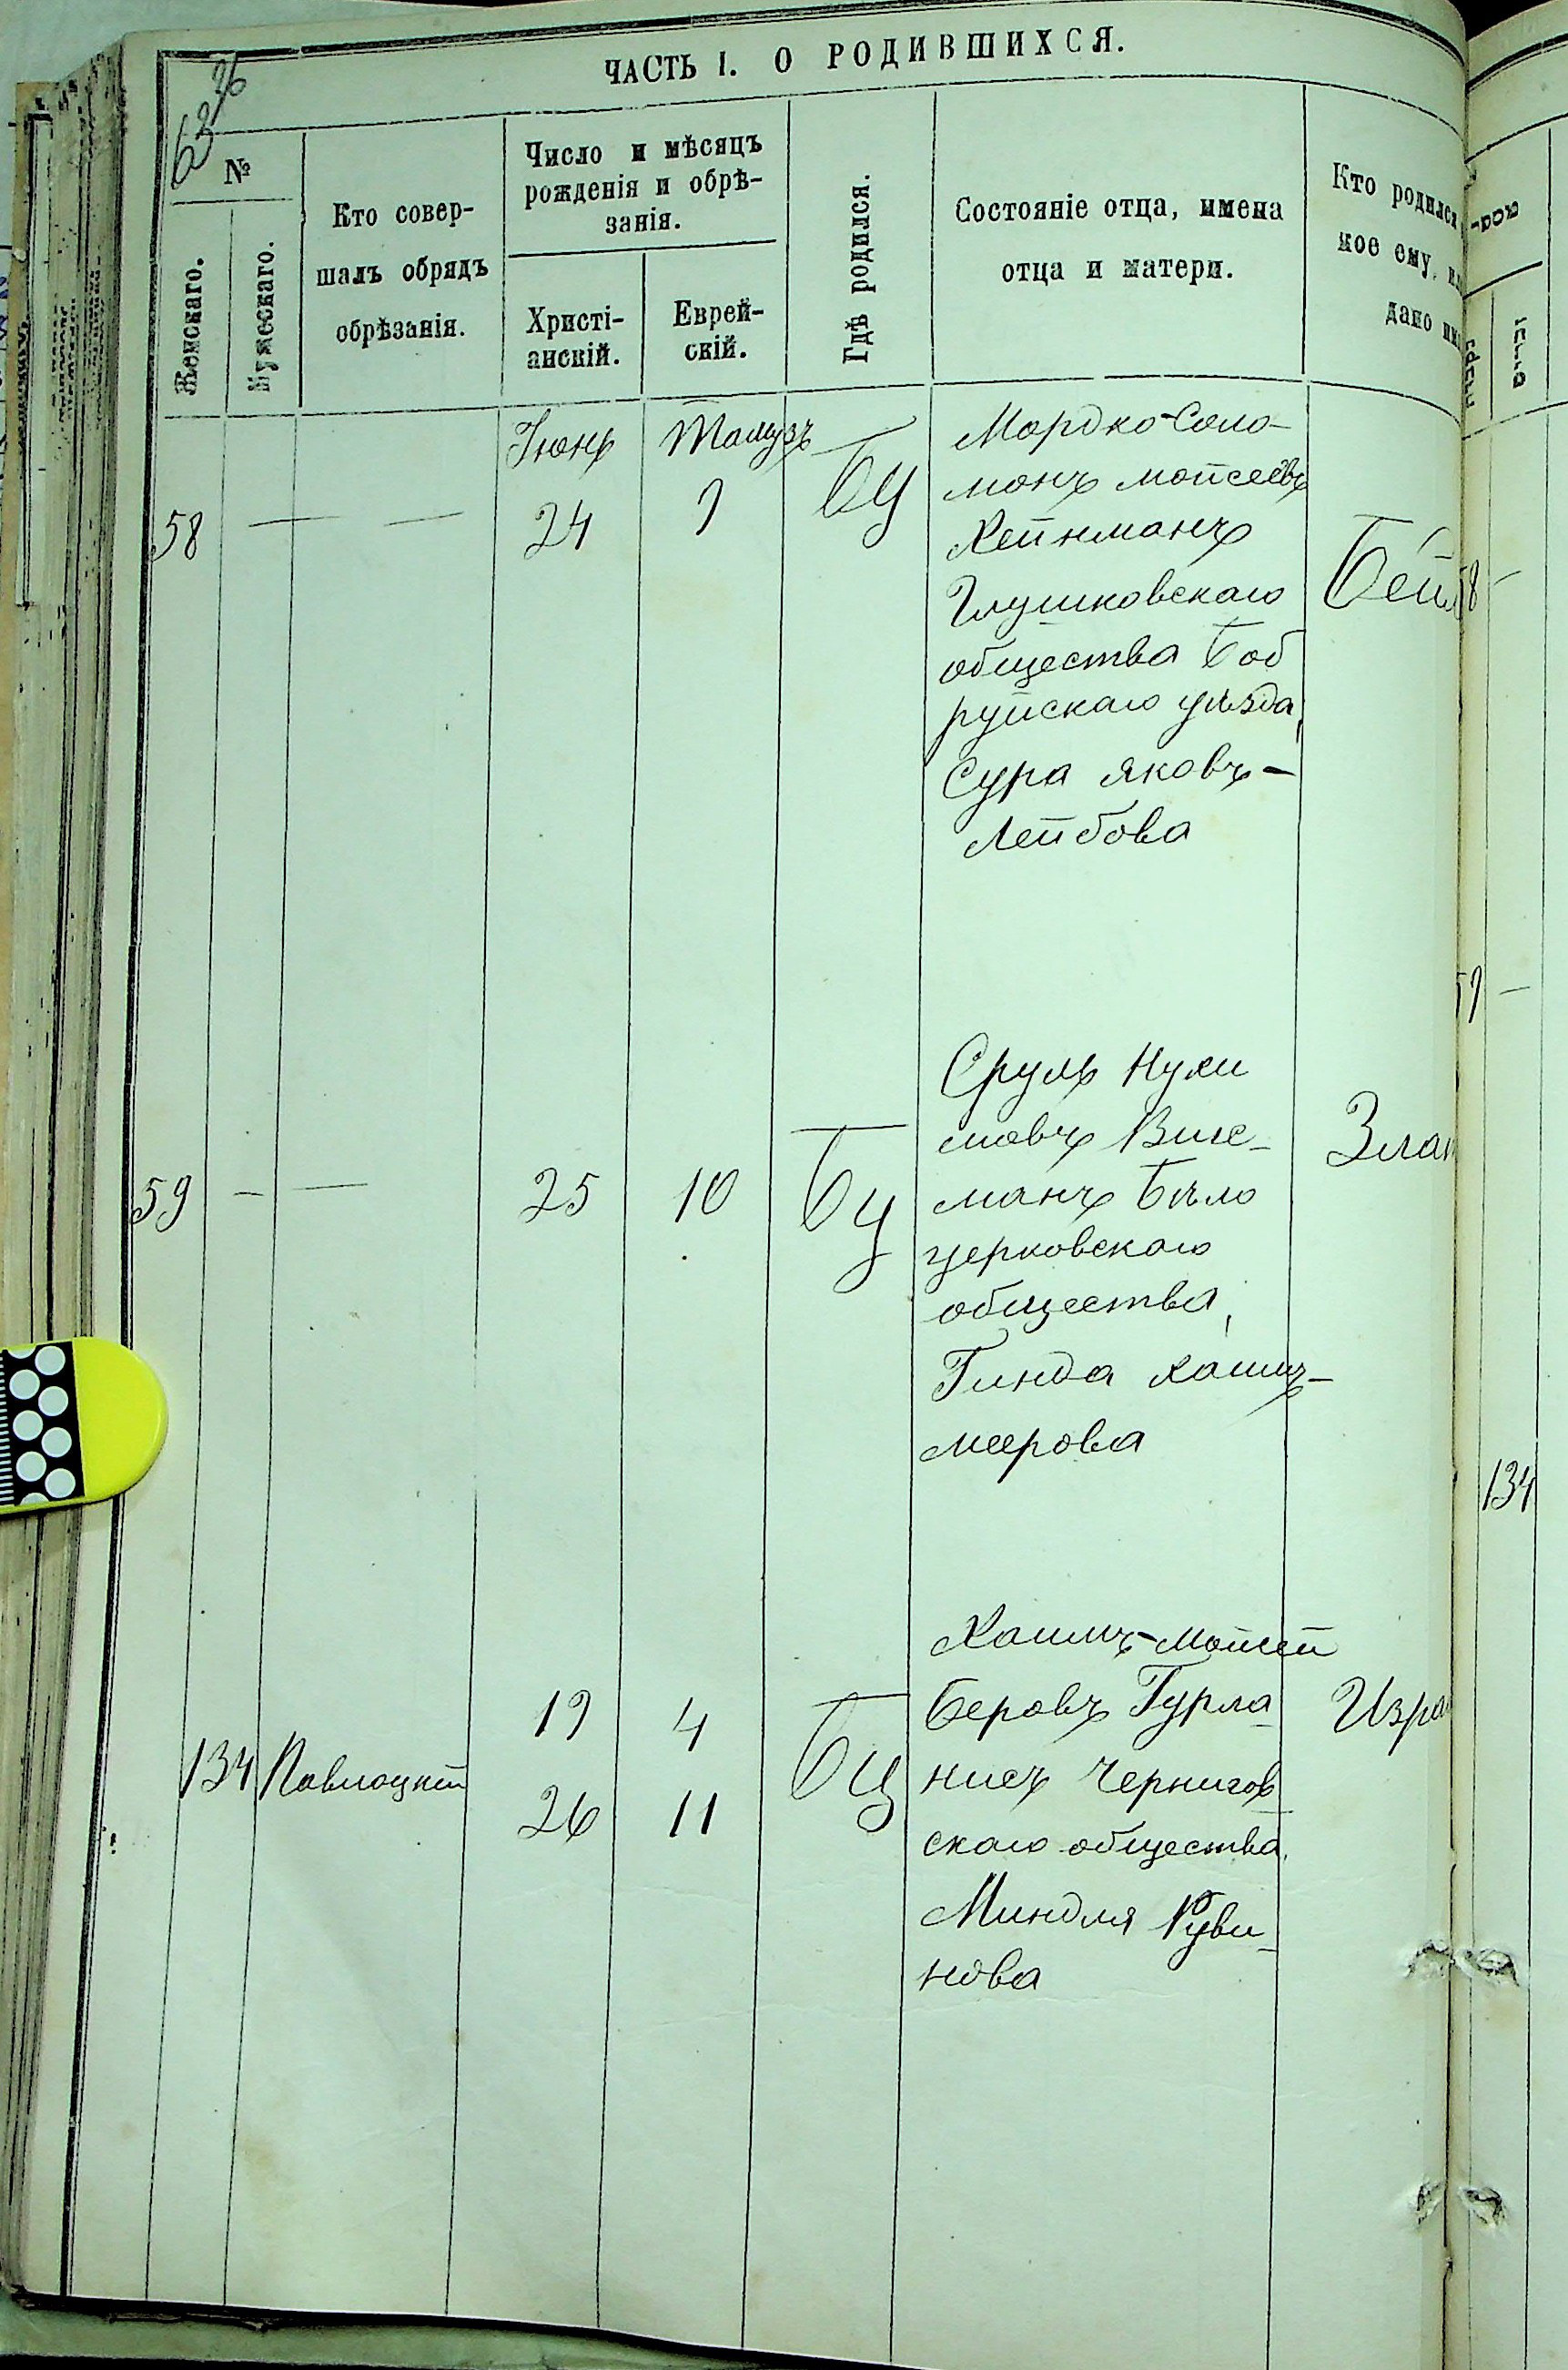 ЧАСТЬ I. О РОДИВШИХСЯ.
№
Женскаго.
Мужескаго.
Кто совер-
шалъ обрядъ
обрѣзанія.
Число и мѣсяцъ
рожденія и обрѣ-
занія.
Христі-
анскій.
Еврей-
скій.
Гдѣ родился.
Состояніе отца, имена
отца и матери.
Кто родился
ное ему,
дано
58
— —
Іюнь
24
Тамузъ
9
БЦ
Мордко-Соло-
монъ Мойсеевъ
Хейнманъ
Глушковскаго
общества Боб
руйскаго уѣзда,
Сура Яковъ-
Лейбова
Бей
59
— —
25
10
БЦ
Сруль Нухи
мовъ Вихс-
манъ Бѣло
церковскаго
общества,
Гинда Хаимъ-
меерова
Злат
134
Павлоцкій
19
26
4
11
БЦ
Хаимъ-Мойсей
Беровъ Гурла-
никъ Чернигов
скаго общества,
Миндля Руви-
нова
Изра
58 —
59 —
134